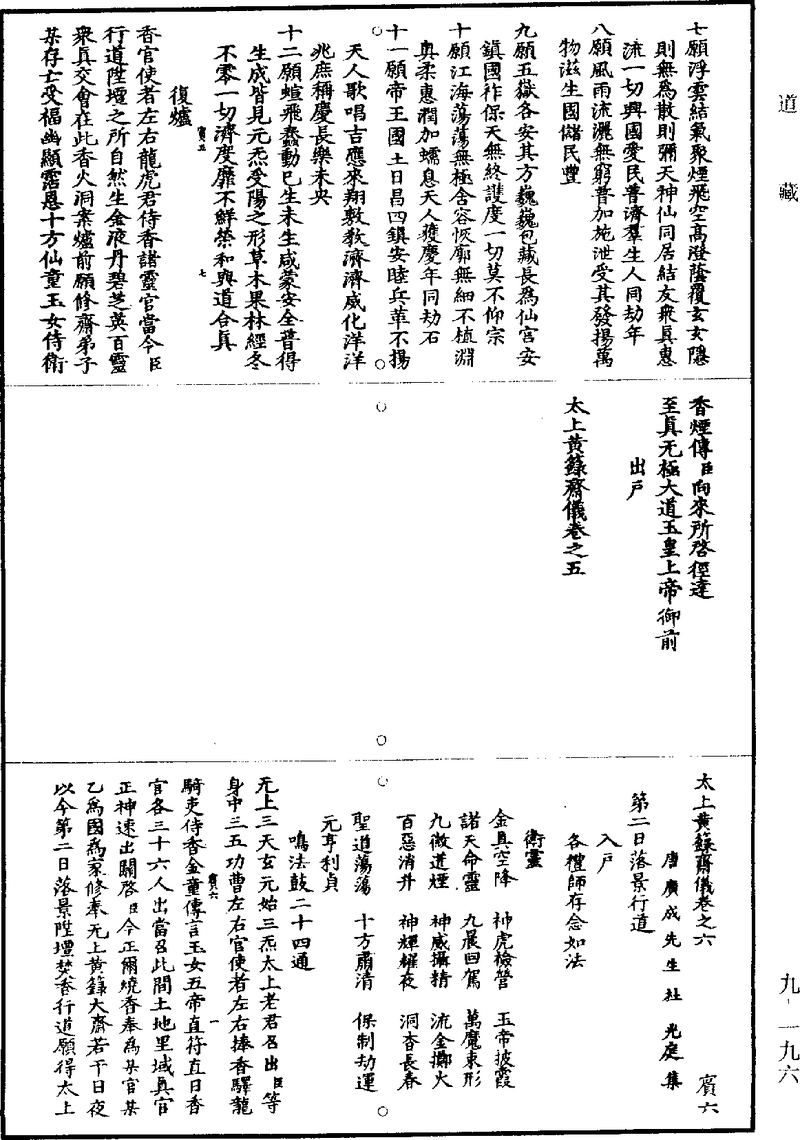 道藏
七願浮雲結氣聚煙飛空高澄蔭覆玄玄隱
則無為散則彌天神仙同居結友衆真惠
流一切興國愛民普濟羣生人同劫年
八願風雨流灑無窮普加施泄受其發揚萬
物滋生國儲民豐
九願五嶽各安其方巍巍苞藏長為仙宮安
鎮國祚保天無終䕶度一切莫不仰宗
十願江海蕩蕩無極含容恢廓無細不植淵
奥柔惠潤加蠕息天人獲慶年同劫石
十一願帝王國土日昌四鎮安睦兵革不揚
天人歌唱吉應來翔敷教濟濟威化洋洋
兆庶稱慶長樂未央
十二願蝖飛蠢動巳生未生咸蒙安全普得
生成皆見元炁受陽之形草木果林經冬
不零一切濟度靡不鮮榮和與道合真
賓五
七
復爐
香官使者左右龍虎君侍香諸靈官當令臣
行道陞壇之所自然生金液丹碧芝英百靈
衆真交會在此香火洞案爐前願修齋弟子
某存亡受福幽顯霑恩十方仙童玉女侍衛
香煙傳臣向來所啓徑達
至真无極大道玉皇上帝御前
出戶
太上黄籙齋儀卷之五
太上黄籙齋儀卷之六
賓六
唐廣成先生杜光庭集
第二日落景行道
入戶
各禮師存念如法
衛靈
金真空降 神虎檢營 玉帝披霞
諾天命靈 九晨回駕 萬魔束形
九微道煙 神威攝精 流金擲火
百惡消升 神輝耀夜 洞杳長春
聖道蕩蕩 十方肅清 保制劫運
元亨利貞
鳴法鼓二十四通
无上三天玄元始三炁太上老君召出臣等
身中三五功曹左右官使者左右捧香驛龍
騎吏侍香金童傳言玉女五帝直符直日香
賓六
一
官各三十六人出當召此間土地里域真官
正神速出關啓臣今正爾燒香奉為某官某
乙為國為家修奉无上黄籙大齋若干日夜
以今第二日落景陞壇焚香行道願得太上
九-一九六